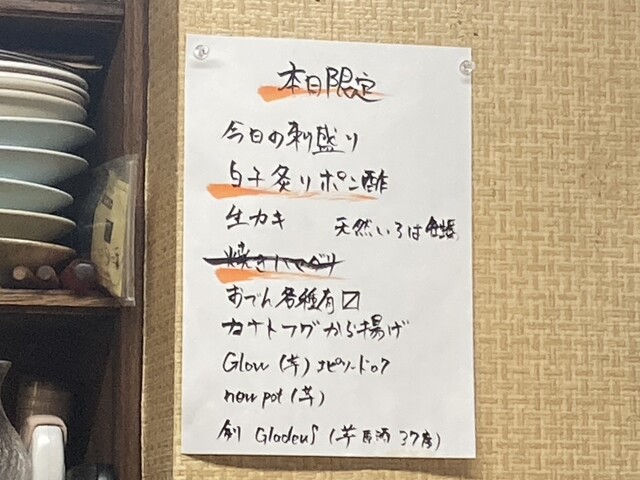 本日限定
今日の刺盛り
白子炙りポン酢
生カキ 天然いろは
焼きハマグリ
おでん各種有〼
カナトフグから揚げ
Glow (芋) エピソード07
new pot (芋)
創 Gloden (芋 原酒 37度)